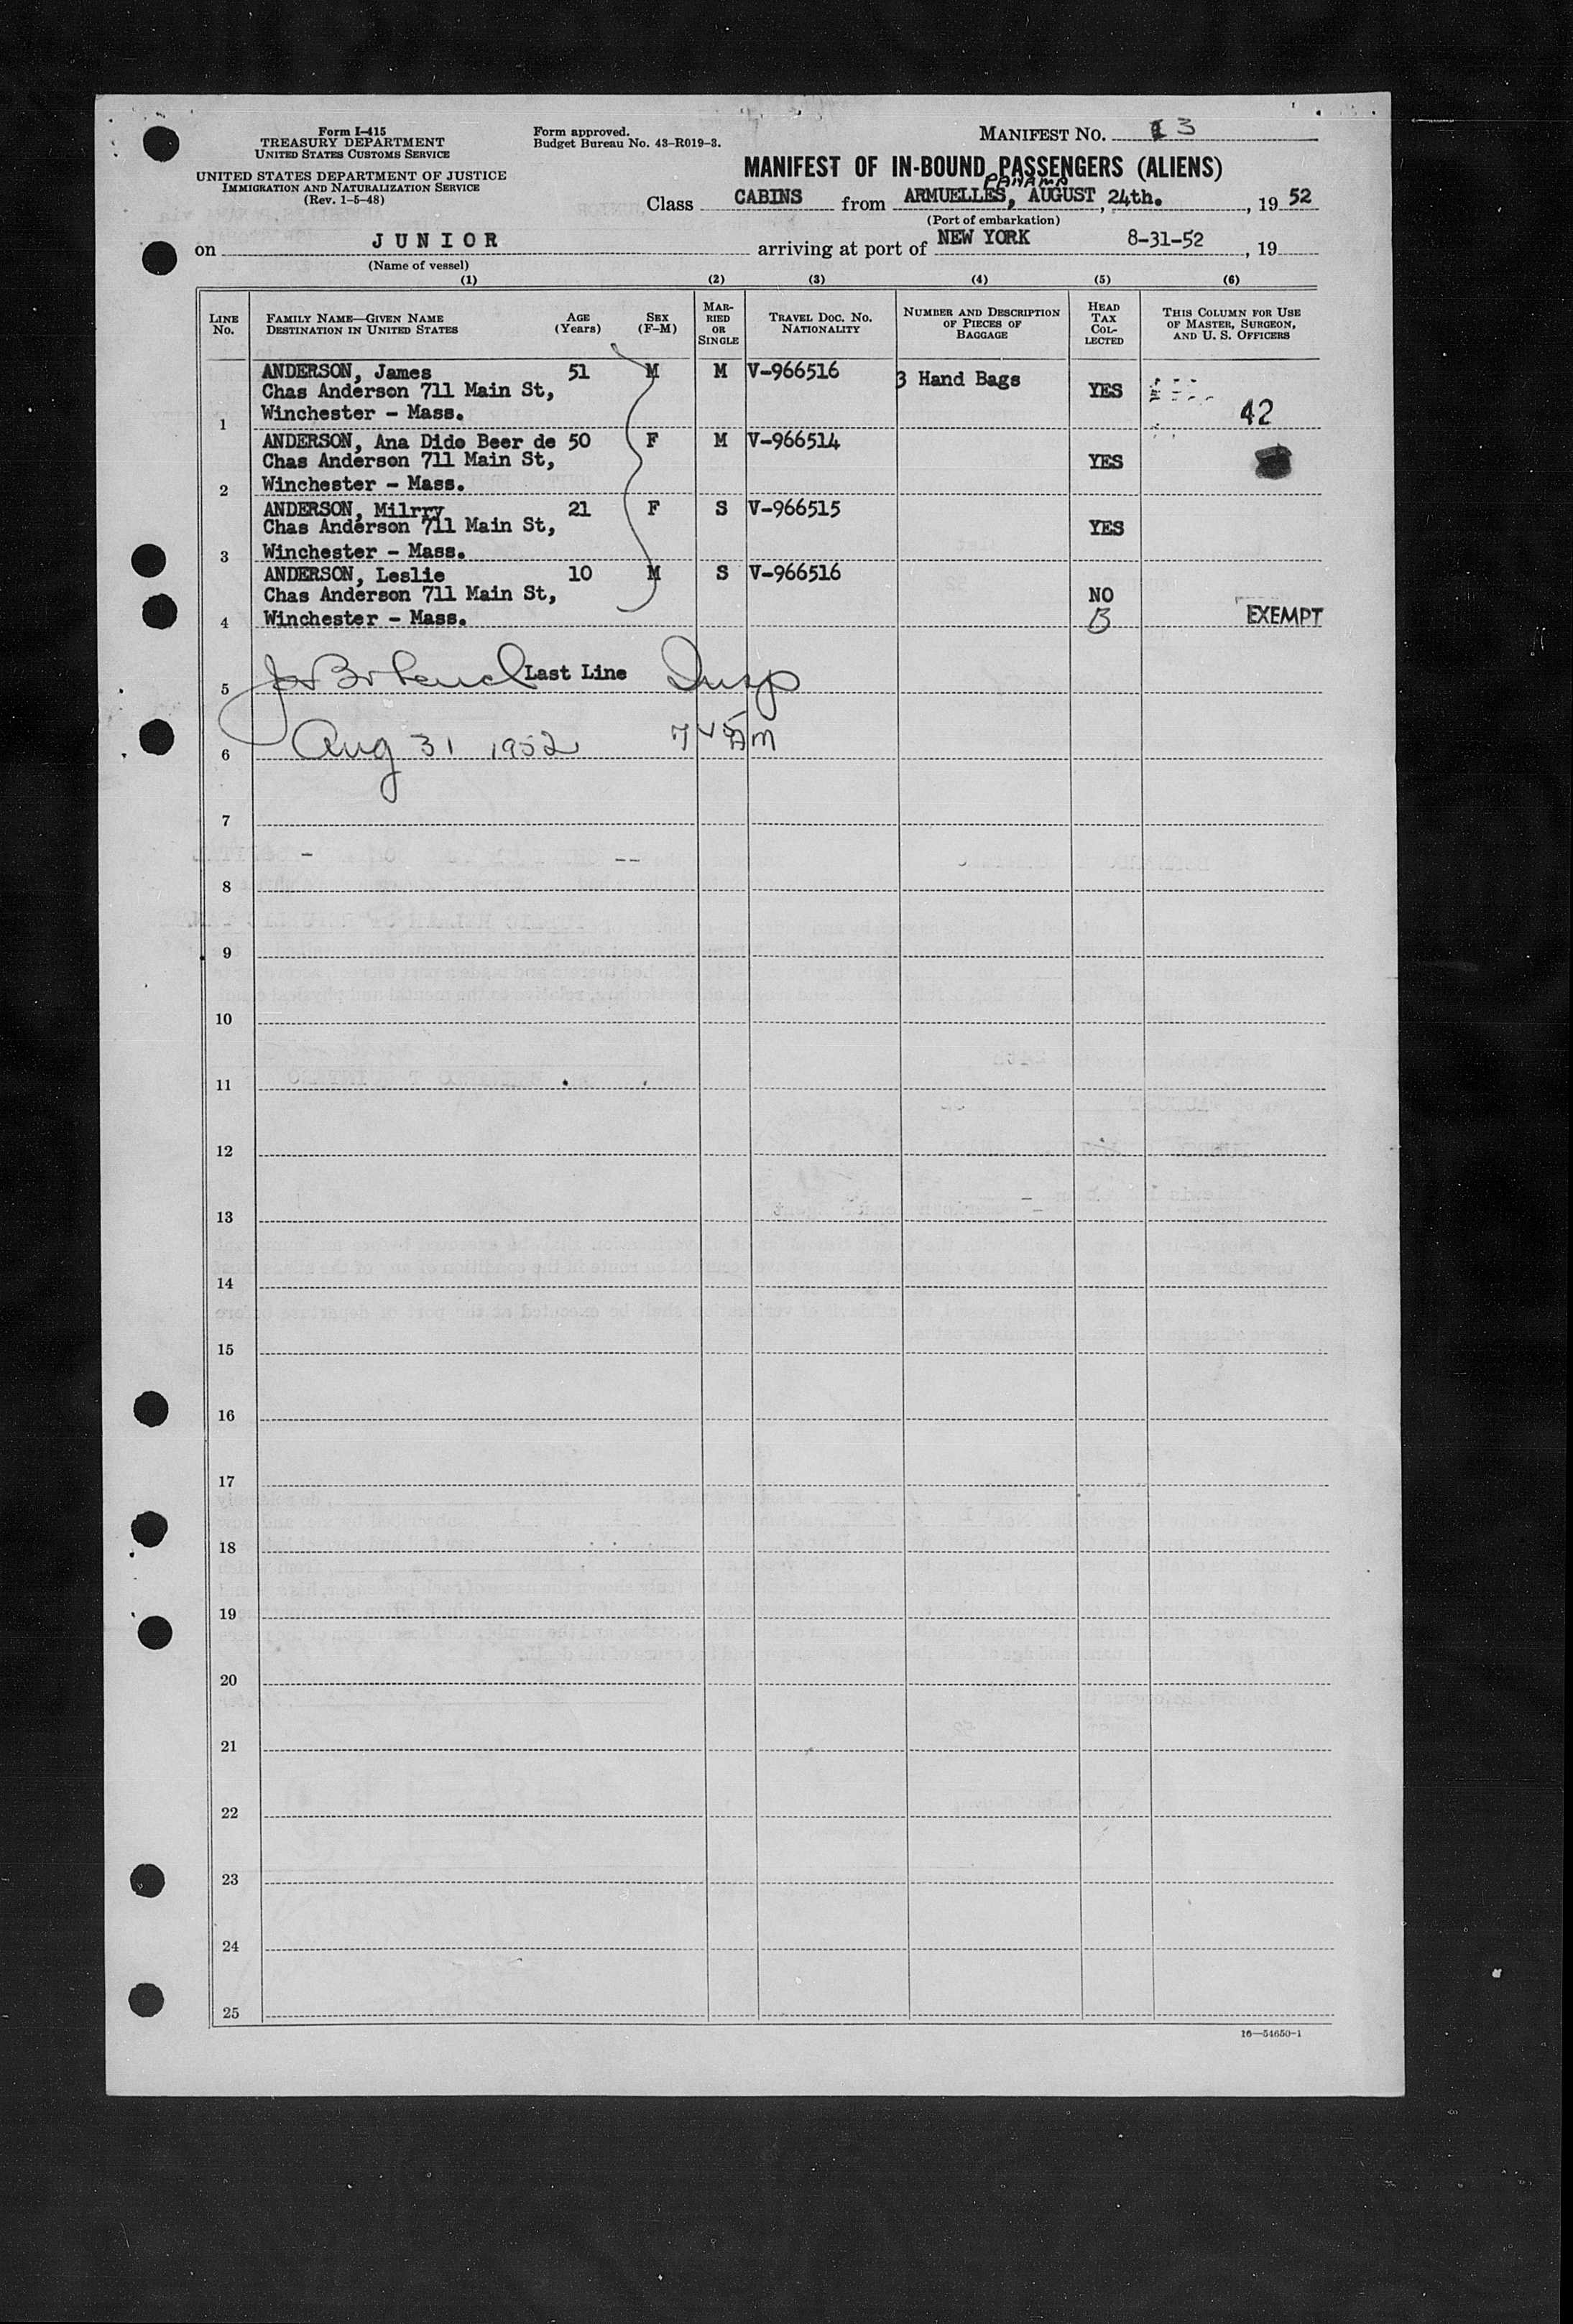 Form I-415
TREASURY DEPARTMENT
UNITED STATES CUSTOMS SERVICE
UNITED STATES DEPARTMENT OF JUSTICE
IMMIGRATION AND NATURALIZATION SERVICE
(Rev. 1-5-48)
Form approved.
Budget Bureau No. 43-R019-3.
MANIFEST NO. 3
MANIFEST OF IN-BOUND PASSENGERS (ALIENS)
PANAMA
Class CABINS from ARMUELLES, AUGUST, 24th., 19 52
(Port of embarkation)
on JUNIOR arriving at port of NEW YORK 8-31-52, 19
(Name of vessel)
(1) (2) (3) (4) (5) (6)
LINE No. FAMILY NAME—GIVEN NAME DESTINATION IN UNITED STATES AGE (Years) SEX (F-M) MARRIED OR SINGLE TRAVEL DOC. NO. NATIONALITY NUMBER AND DESCRIPTION OF PIECES OF BAGGAGE HEAD TAX COLLECTED THIS COLUMN FOR USE OF MASTER, SURGEON, AND U. S. OFFICERS
ANDERSON, James 51 M M V-966516 3 Hand Bags
Chas Anderson 711 Main St, YES
1 Winchester - Mass. 42
ANDERSON, Ana Dido Beer de 50 F M V-966514
Chas Anderson 711 Main St, YES
2 Winchester - Mass.
ANDERSON, Milrry 21 F S V-966515
Chas Anderson 711 Main St, YES
3 Winchester - Mass.
ANDERSON, Leslie 10 M S V-966516
Chas Anderson 711 Main St, NO
4 Winchester - Mass. B EXEMPT
5 Last Line Insp
6 Aug 31 1952 7 45 AM
7
8
9
10
11
12
13
14
15
16
17
18
19
20
21
22
23
24
25
16—54650-1